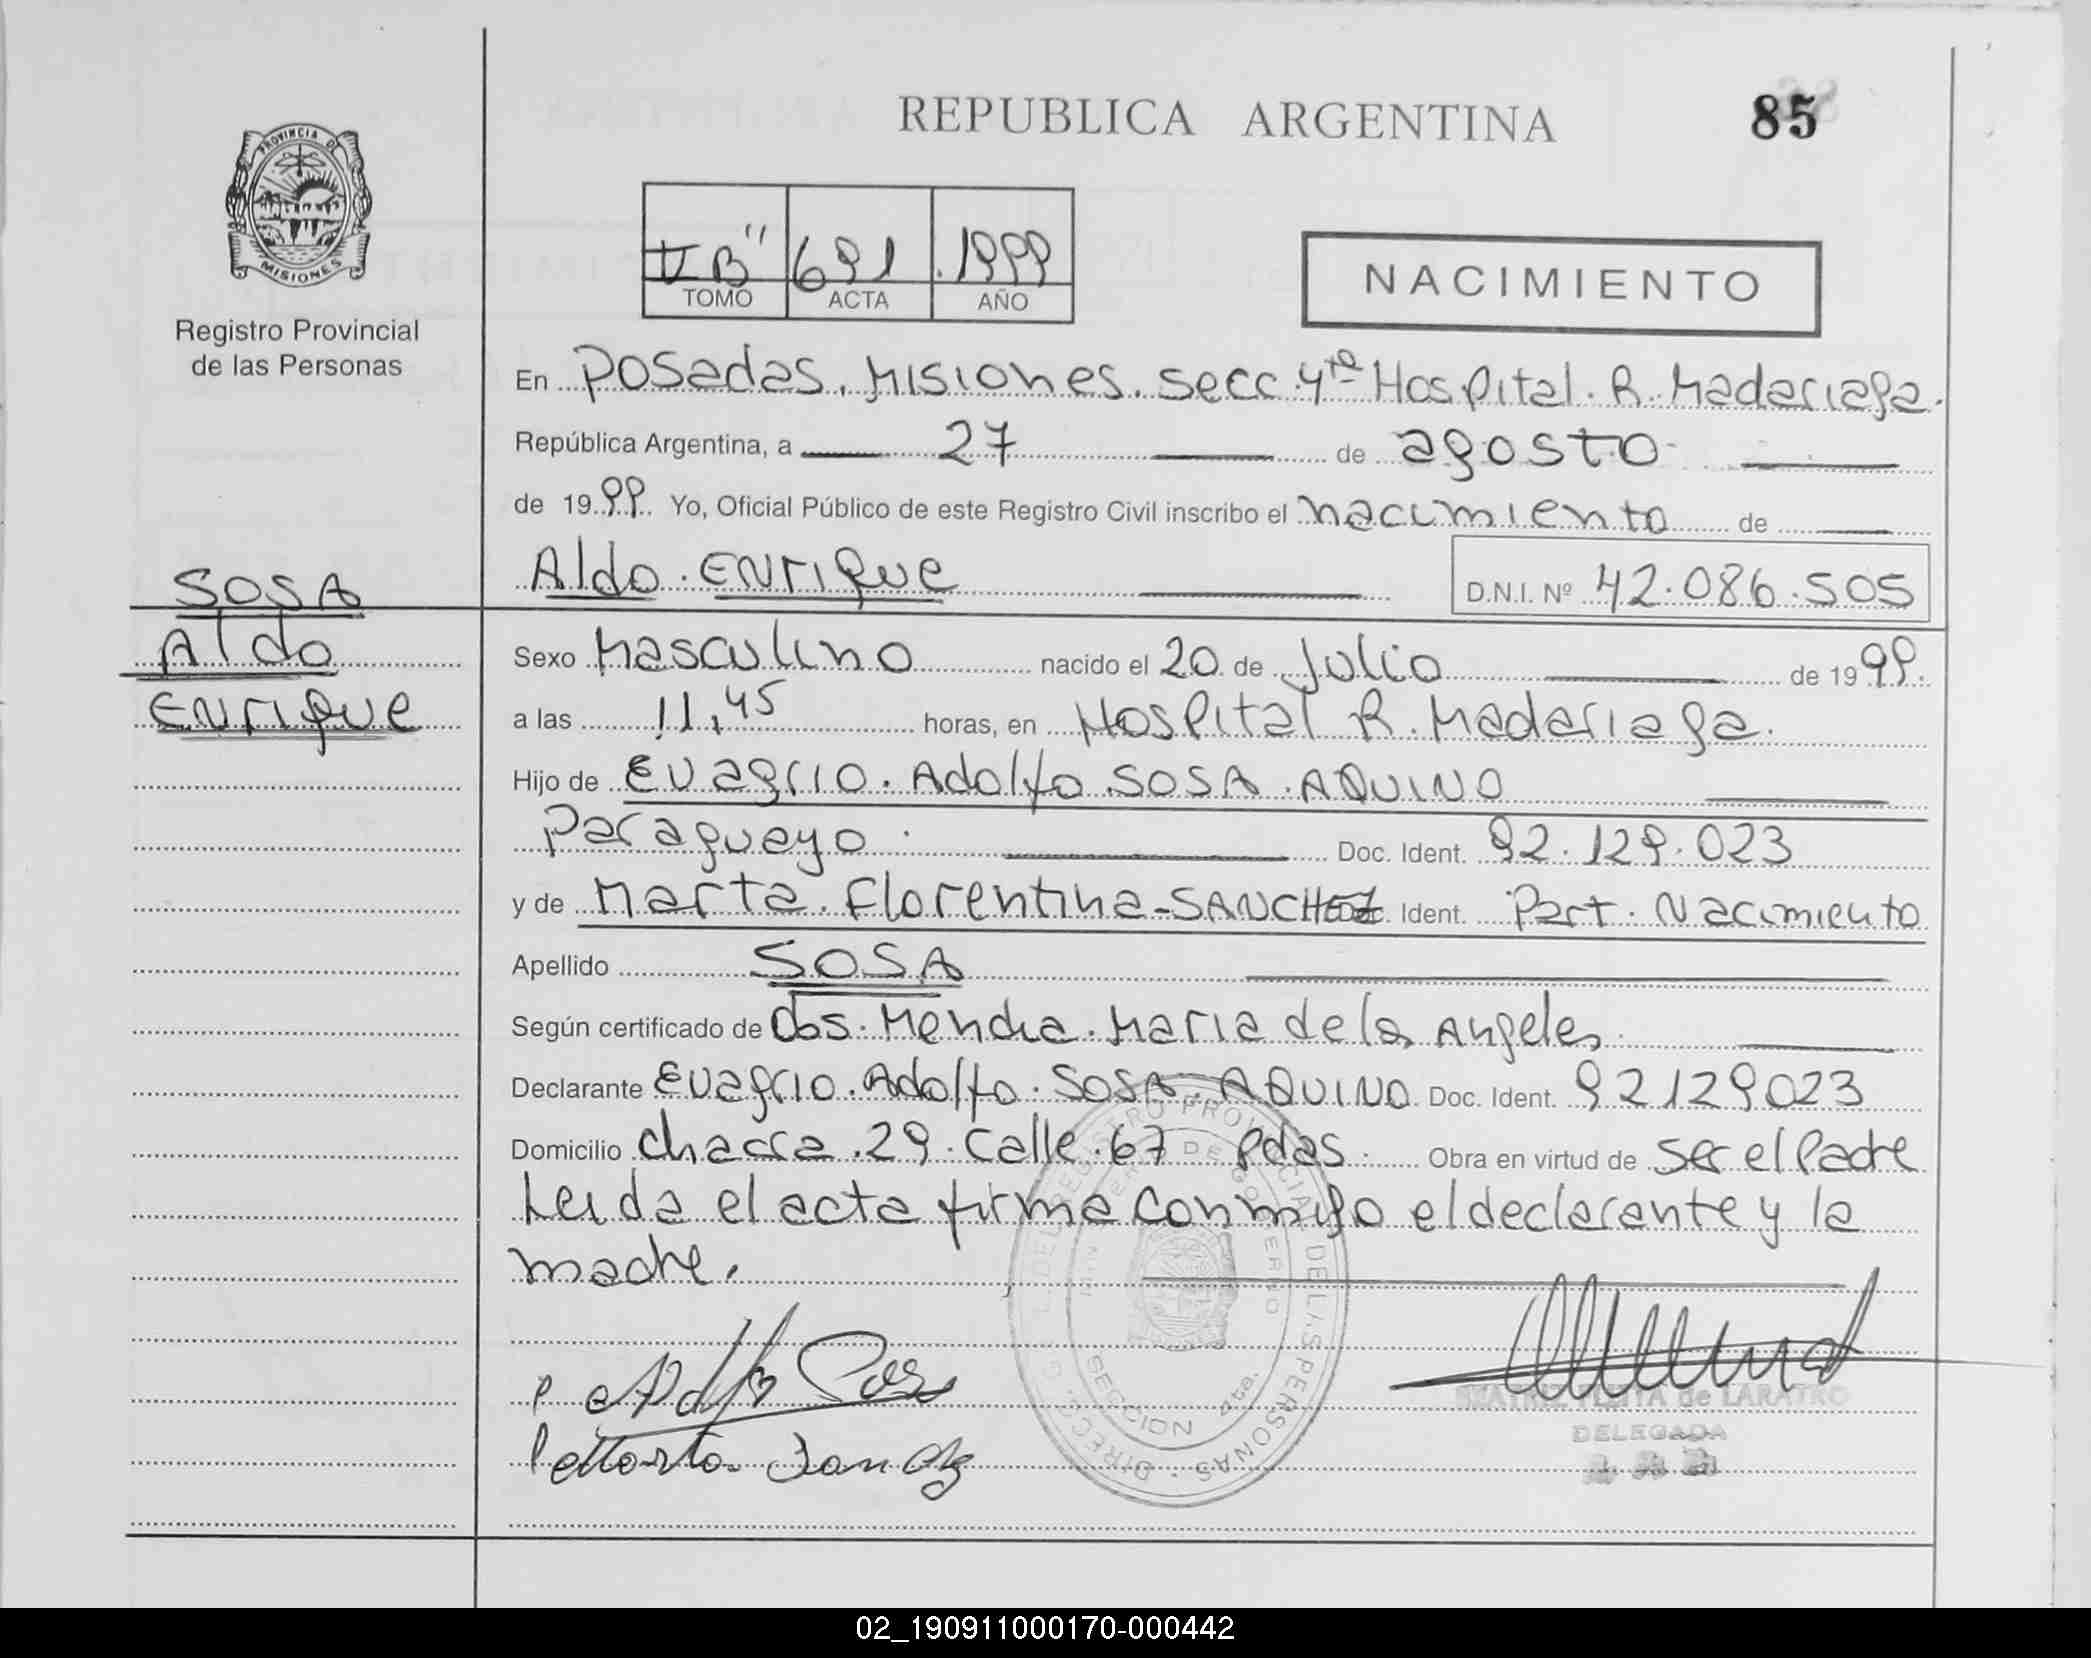 REPUBLICA ARGENTINA
85
PROVINCIA DE
MISIONES
Registro Provincial
de las Personas
II B" 691 1999
TOMO ACTA AÑO
NACIMIENTO
En Posadas. Misiones. Secc. 4ta Hospital. R. Madariaga.
República Argentina, a 27 de agosto
de 1999. Yo, Oficial Público de este Registro Civil inscribo el nacimiento de
Aldo. Enrique
D.N.I. Nº 42.086.505
SOSA
Aldo
Enrique
Sexo Masculino nacido el 20 de Julio de 1999.
a las 11,45 horas, en Hospital R. Madariaga.
Hijo de Evagrio. Adolfo. SOSA. AQUINO
Paraguayo. Doc. Ident. 92.129.023
y de Marta. Florentina-SANCHEZ Ident. Part. Nacimiento
Apellido SOSA
Según certificado de Obs. Mendia. Maria de los Angeles
Declarante Evagrio. Adolfo. SOSA. AQUINO Doc. Ident. 92129023
Domicilio Chacra. 29. Calle. 67 Pdas. Obra en virtud de Ser el Padre
Leida el acta firma conmigo el declarante y la
madre.
Adolfo Sosa
Marta Sanchez
DIRECC. G. DEL REGISTRO PROVINCIAL DE LAS PERSONAS
DE GOBIERNO
SECCION 4ta.
BEATRIZ de LARATRO
DELEGADA
02_190911000170-000442